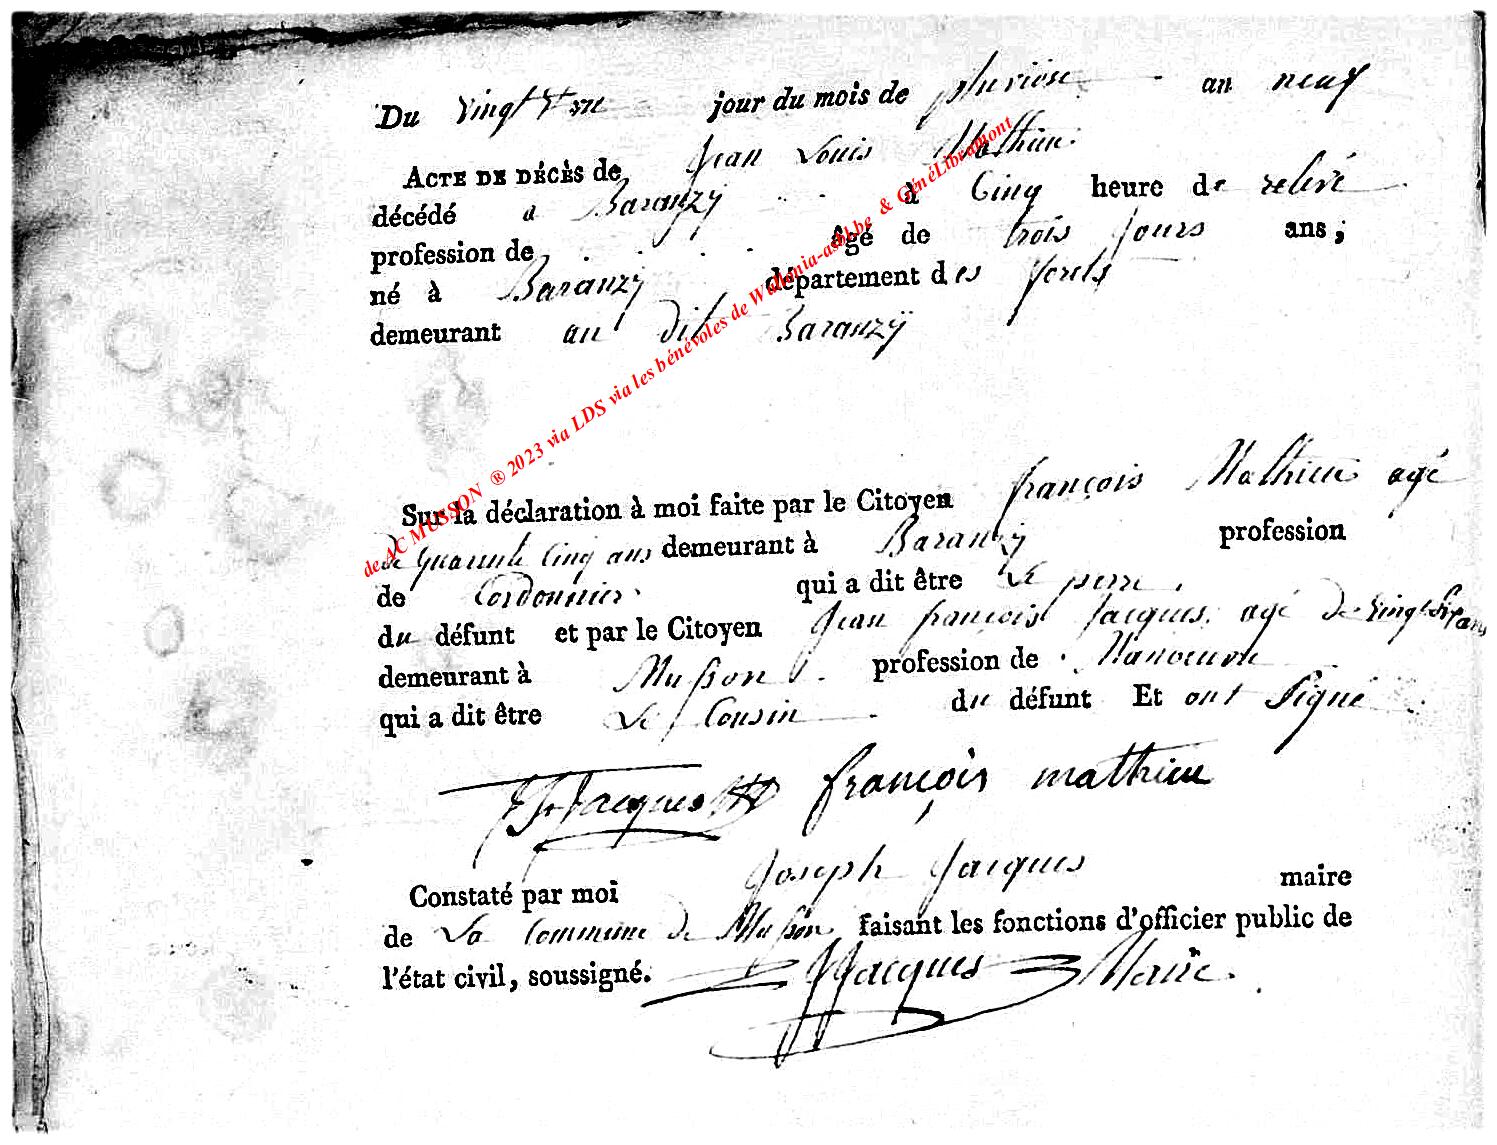 Du vingt et un jour du mois de pluviose an neuf
ACTE DE DÉCÈS de Jean Louis Mathieu
décédé a Baranzÿ à Cinq heure de relevé
profession de âgé de trois jours ans ;
né à Baranzÿ département des forets
demeurant au dit Baranzÿ
Sur la déclaration à moi faite par le Citoyen françois Mathieu agé
de quarante Cinq ans demeurant à Baranzÿ profession
de Cordonnier qui a dit être Le perre
du défunt et par le Citoyen Jean françois Jacques agé De vingt six ans
demeurant à Musson profession de Manoeuvre
qui a dit être Le Cousin du défunt Et ont signé
Jacques françois mathieu
Constaté par moi Joseph Jacques maire
de La Commune de Musson faisant les fonctions d'officier public de
l'état civil, soussigné. Jacques Maire
de AC MUSSON ® 2023 via LDS via les bénévoles de Wallonia-asbl.be & GénéLibramont